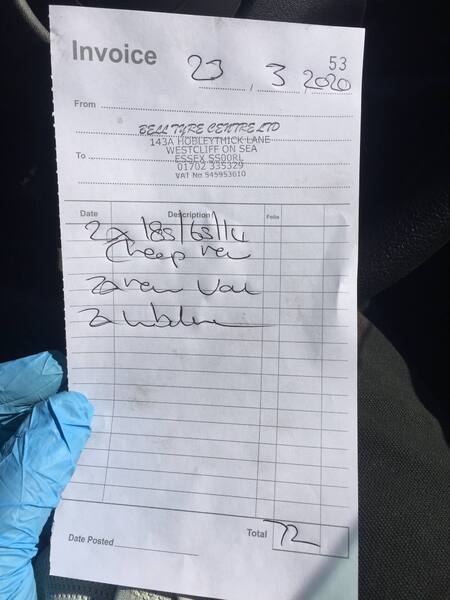 53
Invoice 23 / 3 2020
From
BELL TYRE CENTRE LTD
143A HOBLEYTHICK LANE
WESTCLIFF ON SEA
To ESSEX SS00RL
01702 335329
VAT No 545953610
Date Description Folio
2 x 185/65/14
Cheap new
2 x new Val
2 x
Total 72
Date Posted